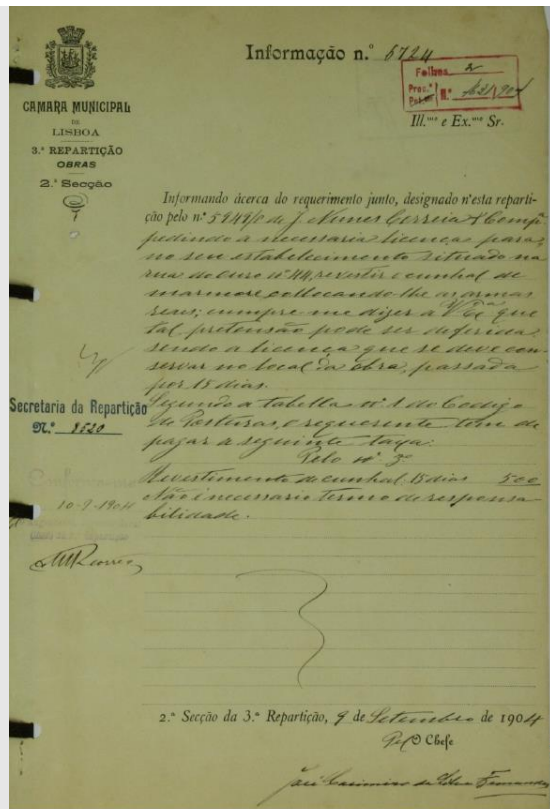 Informação n.º 6724
Folhas 2
Proc.º
N.º
CAMARA MUNICIPAL
DE
LISBOA
3.ª REPARTIÇÃO
OBRAS
2.ª Secção
Ill.mo e Ex.mo Sr.
Informando ácerca do requerimento junto, designado n'esta reparti-
ção pelo n.º 5949/P de J. Nunes Correia & Comp.ª
pedindo a necessaria licença para,
no seu estabelecimento situado na
rua do Ouro nº 44, revestir o cunhal de
marmore collocando-lhe as armas
reaes; cumpre-me dizer a V. Ex.ª que
tal pretensão pode ser deferida
sendo a licença que se deve con-
servar no local da obra, passada
por 15 dias.
Segundo a tabella nº 1 do Codigo
de Posturas, o requerente tem de
pagar a seguinte taxa:
Pelo nº 3º
Revestimento de cunhal 15 dias 500
Não é necessario termo de responsa
bilidade.
Secretaria da Repartição
N.º 8520
10-9-1904
2.ª Secção da 3.ª Repartição, 9 de Setembro de 1904
Pel O Chefe
José Casimiro da Silva Fernandes